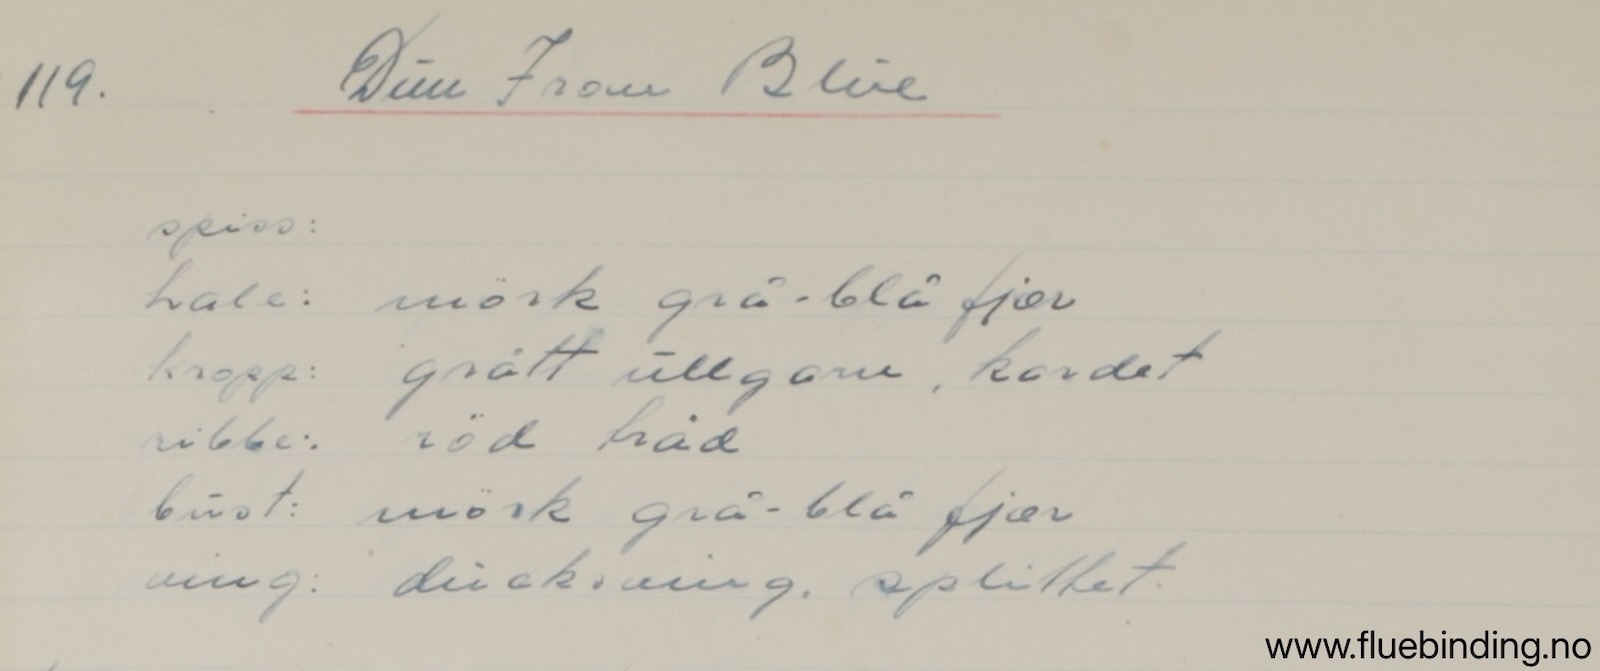 119. Dun Iron Blue
spiss:
hale: mörk grå-blå fjær
kropp: grått ullgarn, kardet
ribbe: röd tråd
bust: mörk grå-blå fjær
ving: duck.ving. splittet.
www.fluebinding.no